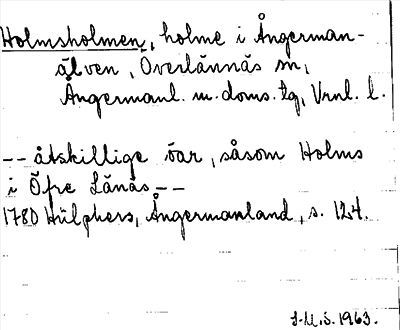 Holmsholmen, holme i Ångerman-
älven, Överlännäs sn,
Ångermanl. m. doms. tg, Vrnl. l.
-- åtskillige öar, såsom Holms
i Öfre Länäs --
1780 Hülphers, Ångermanland, s. 124.
S.M.S. 1963.